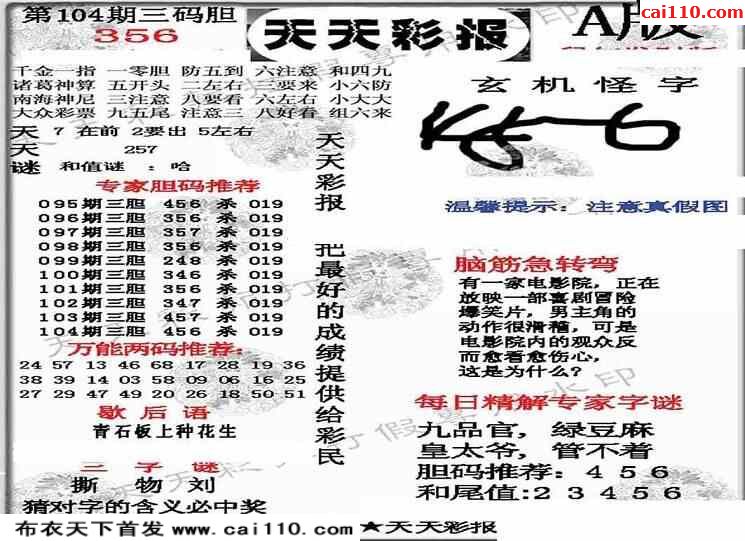 第104期三码胆
356
天天彩报
A版
cai110.com
千金一指 一零胆 防五到 六注意 和四九
诸葛神算 五开头 二左右 三要来 小六防
南海神尼 三注意 八要看 六左右 小大大
大众彩票 九五尾 注意三 八好看 组六来
天 7 在前 2要出 5左右
天 257
谜 和值谜 : 哈
专家胆码推荐
095期三胆 456 杀 019
096期三胆 356 杀 019
097期三胆 357 杀 019
098期三胆 356 杀 019
099期三胆 248 杀 019
100期三胆 346 杀 019
101期三胆 356 杀 019
102期三胆 347 杀 019
103期三胆 457 杀 019
104期三胆 456 杀 019
万能两码推荐:
24 57 13 46 68 17 28 19 36
38 39 14 03 58 09 06 16 25
27 29 47 49 20 26 18 50 51
歇后语
青石板上种花生
三字谜
撕 物 刘
猜对字的含义必中奖
天天彩报 把最好的成绩提供给彩民
玄机怪字
温馨提示: 注意真假图
脑筋急转弯
有一家电影院,正在
放映一部喜剧冒险
爆笑片,男主角的
动作很滑稽,可是
电影院内的观众反
而愈看愈伤心,
这是为什么?
每日精解专家字谜
九品官,绿豆麻
皇太爷,管不着
胆码推荐:456
和尾值:23456
布衣天下首发 www.cai110.com ★天天彩报